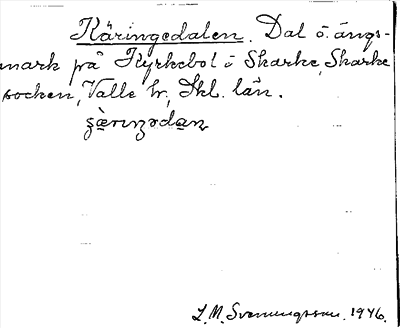 Käringedalen. Dal o. ängs-
mark på Kyrkebol i Skarke, Skarke
socken, Valle hr, Skbl. län.
L. M. Svenungsson. 1946.